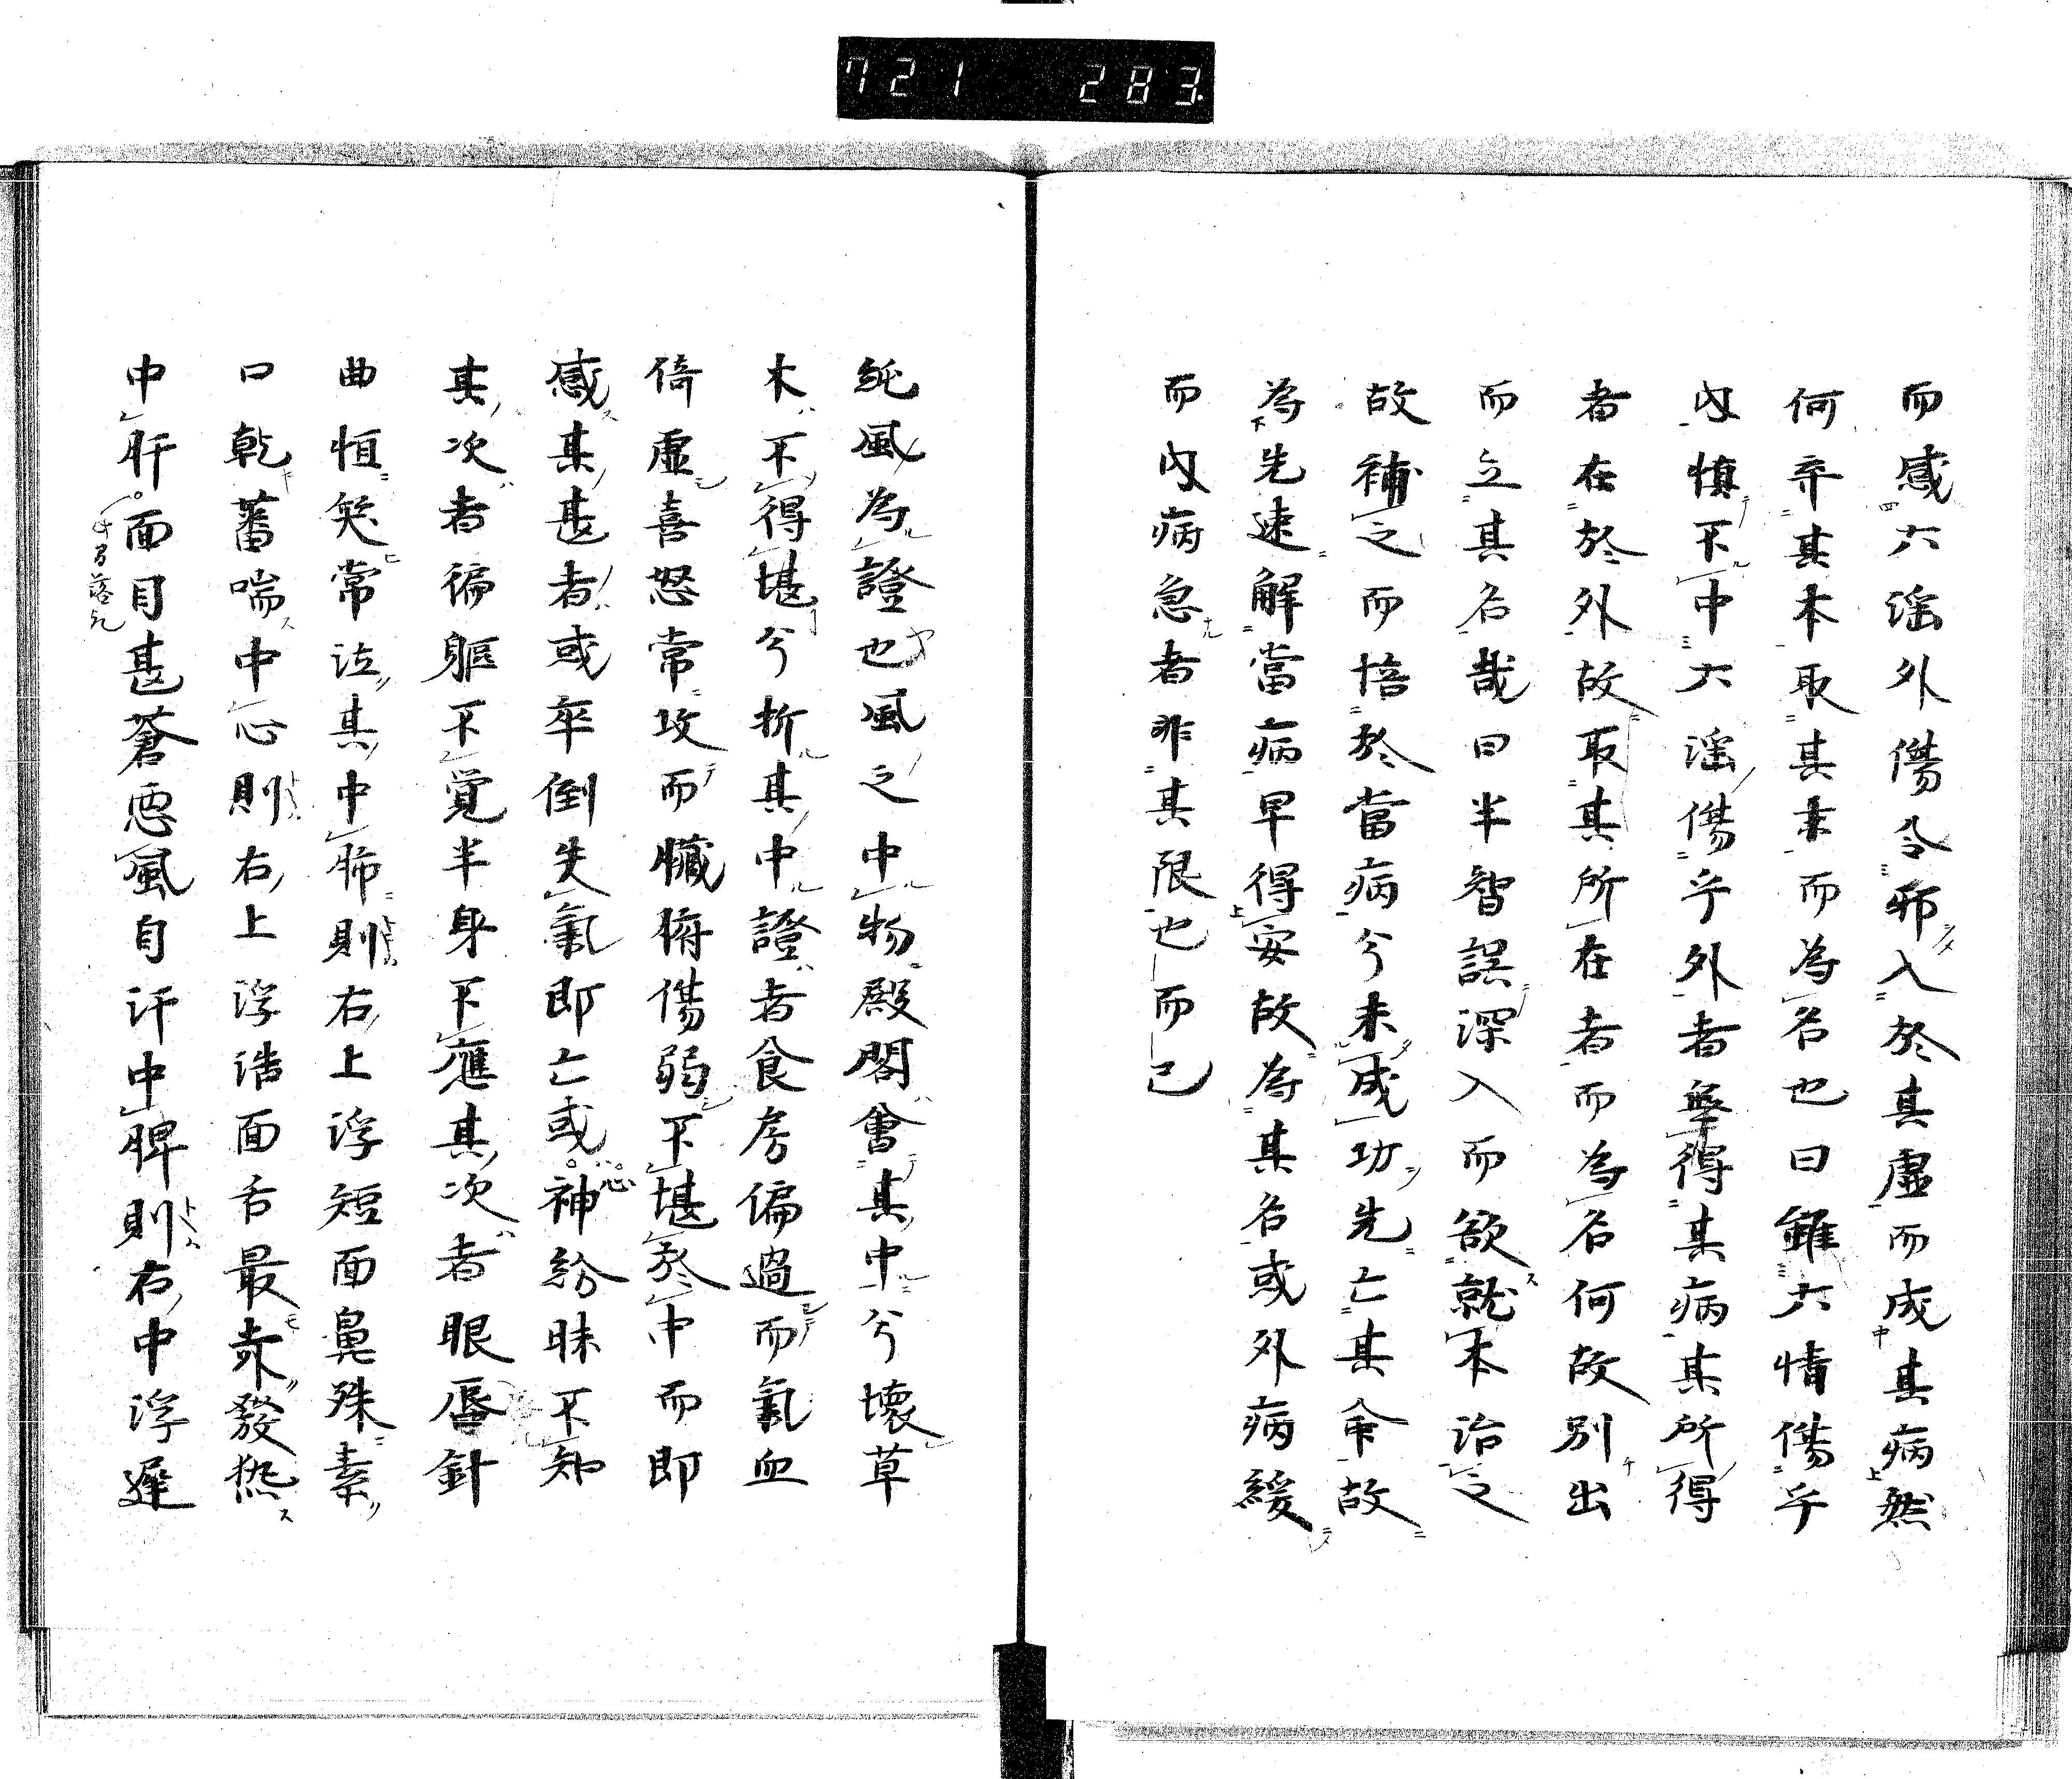 721 283
而感六淫外傷令邪入於其虛而成其病然
何弃其本取其末而為名也曰雖六情傷乎
內慎不中六淫傷乎外者無得其病其所得
者在於外故取其所在者而為名何故別出
而立其名哉曰半智誤深入而欲就本治之
故補之而倍於當病兮未成功先亡其命故
為先速解當病早得安故為其名或外病緩
而內病急者非其限也而已
純風為證也風之中物殿閣會其中兮壞草
木不得堪兮折其中證者食房偏過而氣血
倚虛喜怒常攻而臟腑傷弱不堪於中而即
感其甚者或卒倒失氣即亡或神紛昧不知
其次者徧軀不覚半身不應其次者眼唇針
曲恒笑常泣其中肺則右上浮短面鼻殊素
口乾蕃喘中心則右上浮浩面舌最赤發热
中肝面目甚蒼悪風自汗中脾則右中浮遲